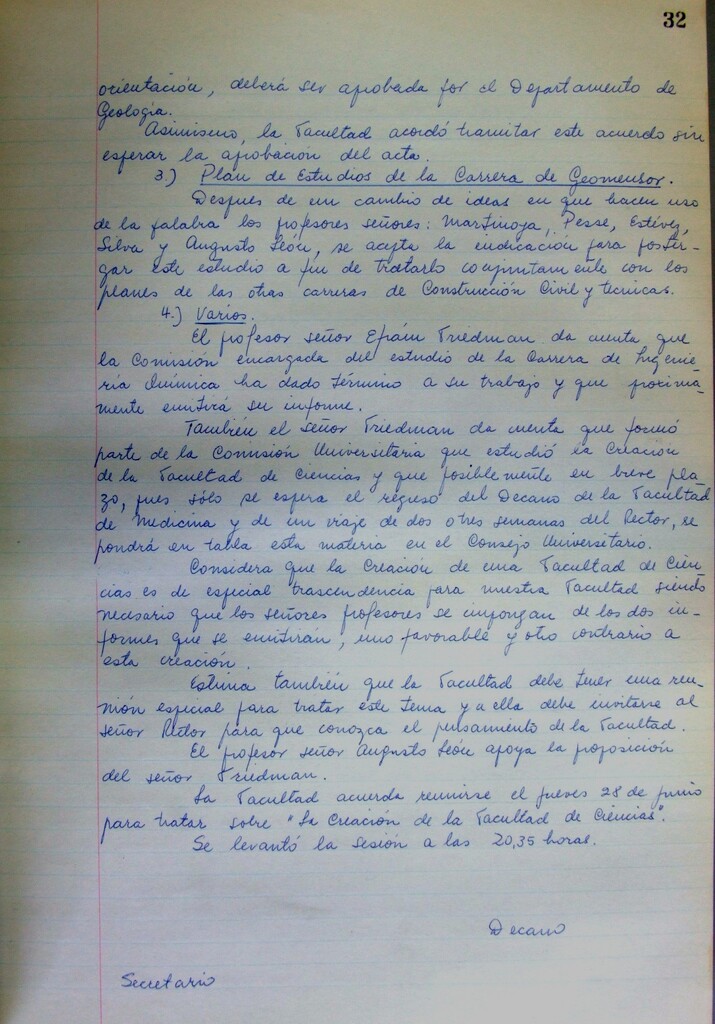 32
orientación, deberá ser aprobada por el Departamento de
Geología.
Asimismo, la Facultad acordó tramitar este acuerdo sin
esperar la aprobación del acta.
3.) Plan de Estudios de la Carrera de Geomensor.
Después de un cambio de ideas en que hacen uso
de la palabra los profesores señores: Martinoya, Pesse, Estévez,
Silva y Augusto León, se acepta la indicación para poster-
gar este estudio a fin de tratarlo conjuntamente con los
planes de las otras carreras de Construcción Civil y técnicas.
4.) Varios.
El profesor señor Efraín Friedman da cuenta que
la Comisión encargada del estudio de la Carrera de Ingenie-
ría Química ha dado término a su trabajo y que próxima-
mente emitirá su informe.
También el señor Friedman da cuenta que formó
parte de la Comisión Universitaria que estudió la Creación
de la Facultad de Ciencias y que posiblemente en breve pla-
zo, pues sólo se espera el regreso del Decano de la Facultad
de Medicina y de un viaje de dos o tres semanas del Rector, se
pondrá en tabla esta materia en el Consejo Universitario.
Considera que la Creación de una Facultad de Cien-
cias es de especial trascendencia para nuestra Facultad siendo
necesario que los señores profesores se impongan de los dos in-
formes que se emitirán, uno favorable y otro contrario a
esta creación.
Estima también que la Facultad debe tener una reu-
nión especial para tratar este tema y a ella debe invitarse al
señor Rector para que conozca el pensamiento de la Facultad.
El profesor señor Augusto León apoya la proposición
del señor Friedman.
La Facultad acuerda reunirse el jueves 28 de junio
para tratar sobre "La Creación de la Facultad de Ciencias".
Se levantó la sesión a las 20,35 horas.
Decano
Secretario